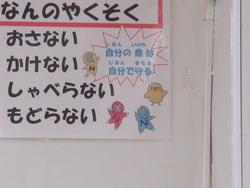 なんのやくそく
おさない
かけない
しゃべらない
もどらない
じぶん いのち
自分の命は
じぶん まもる
自分で守る
N
N